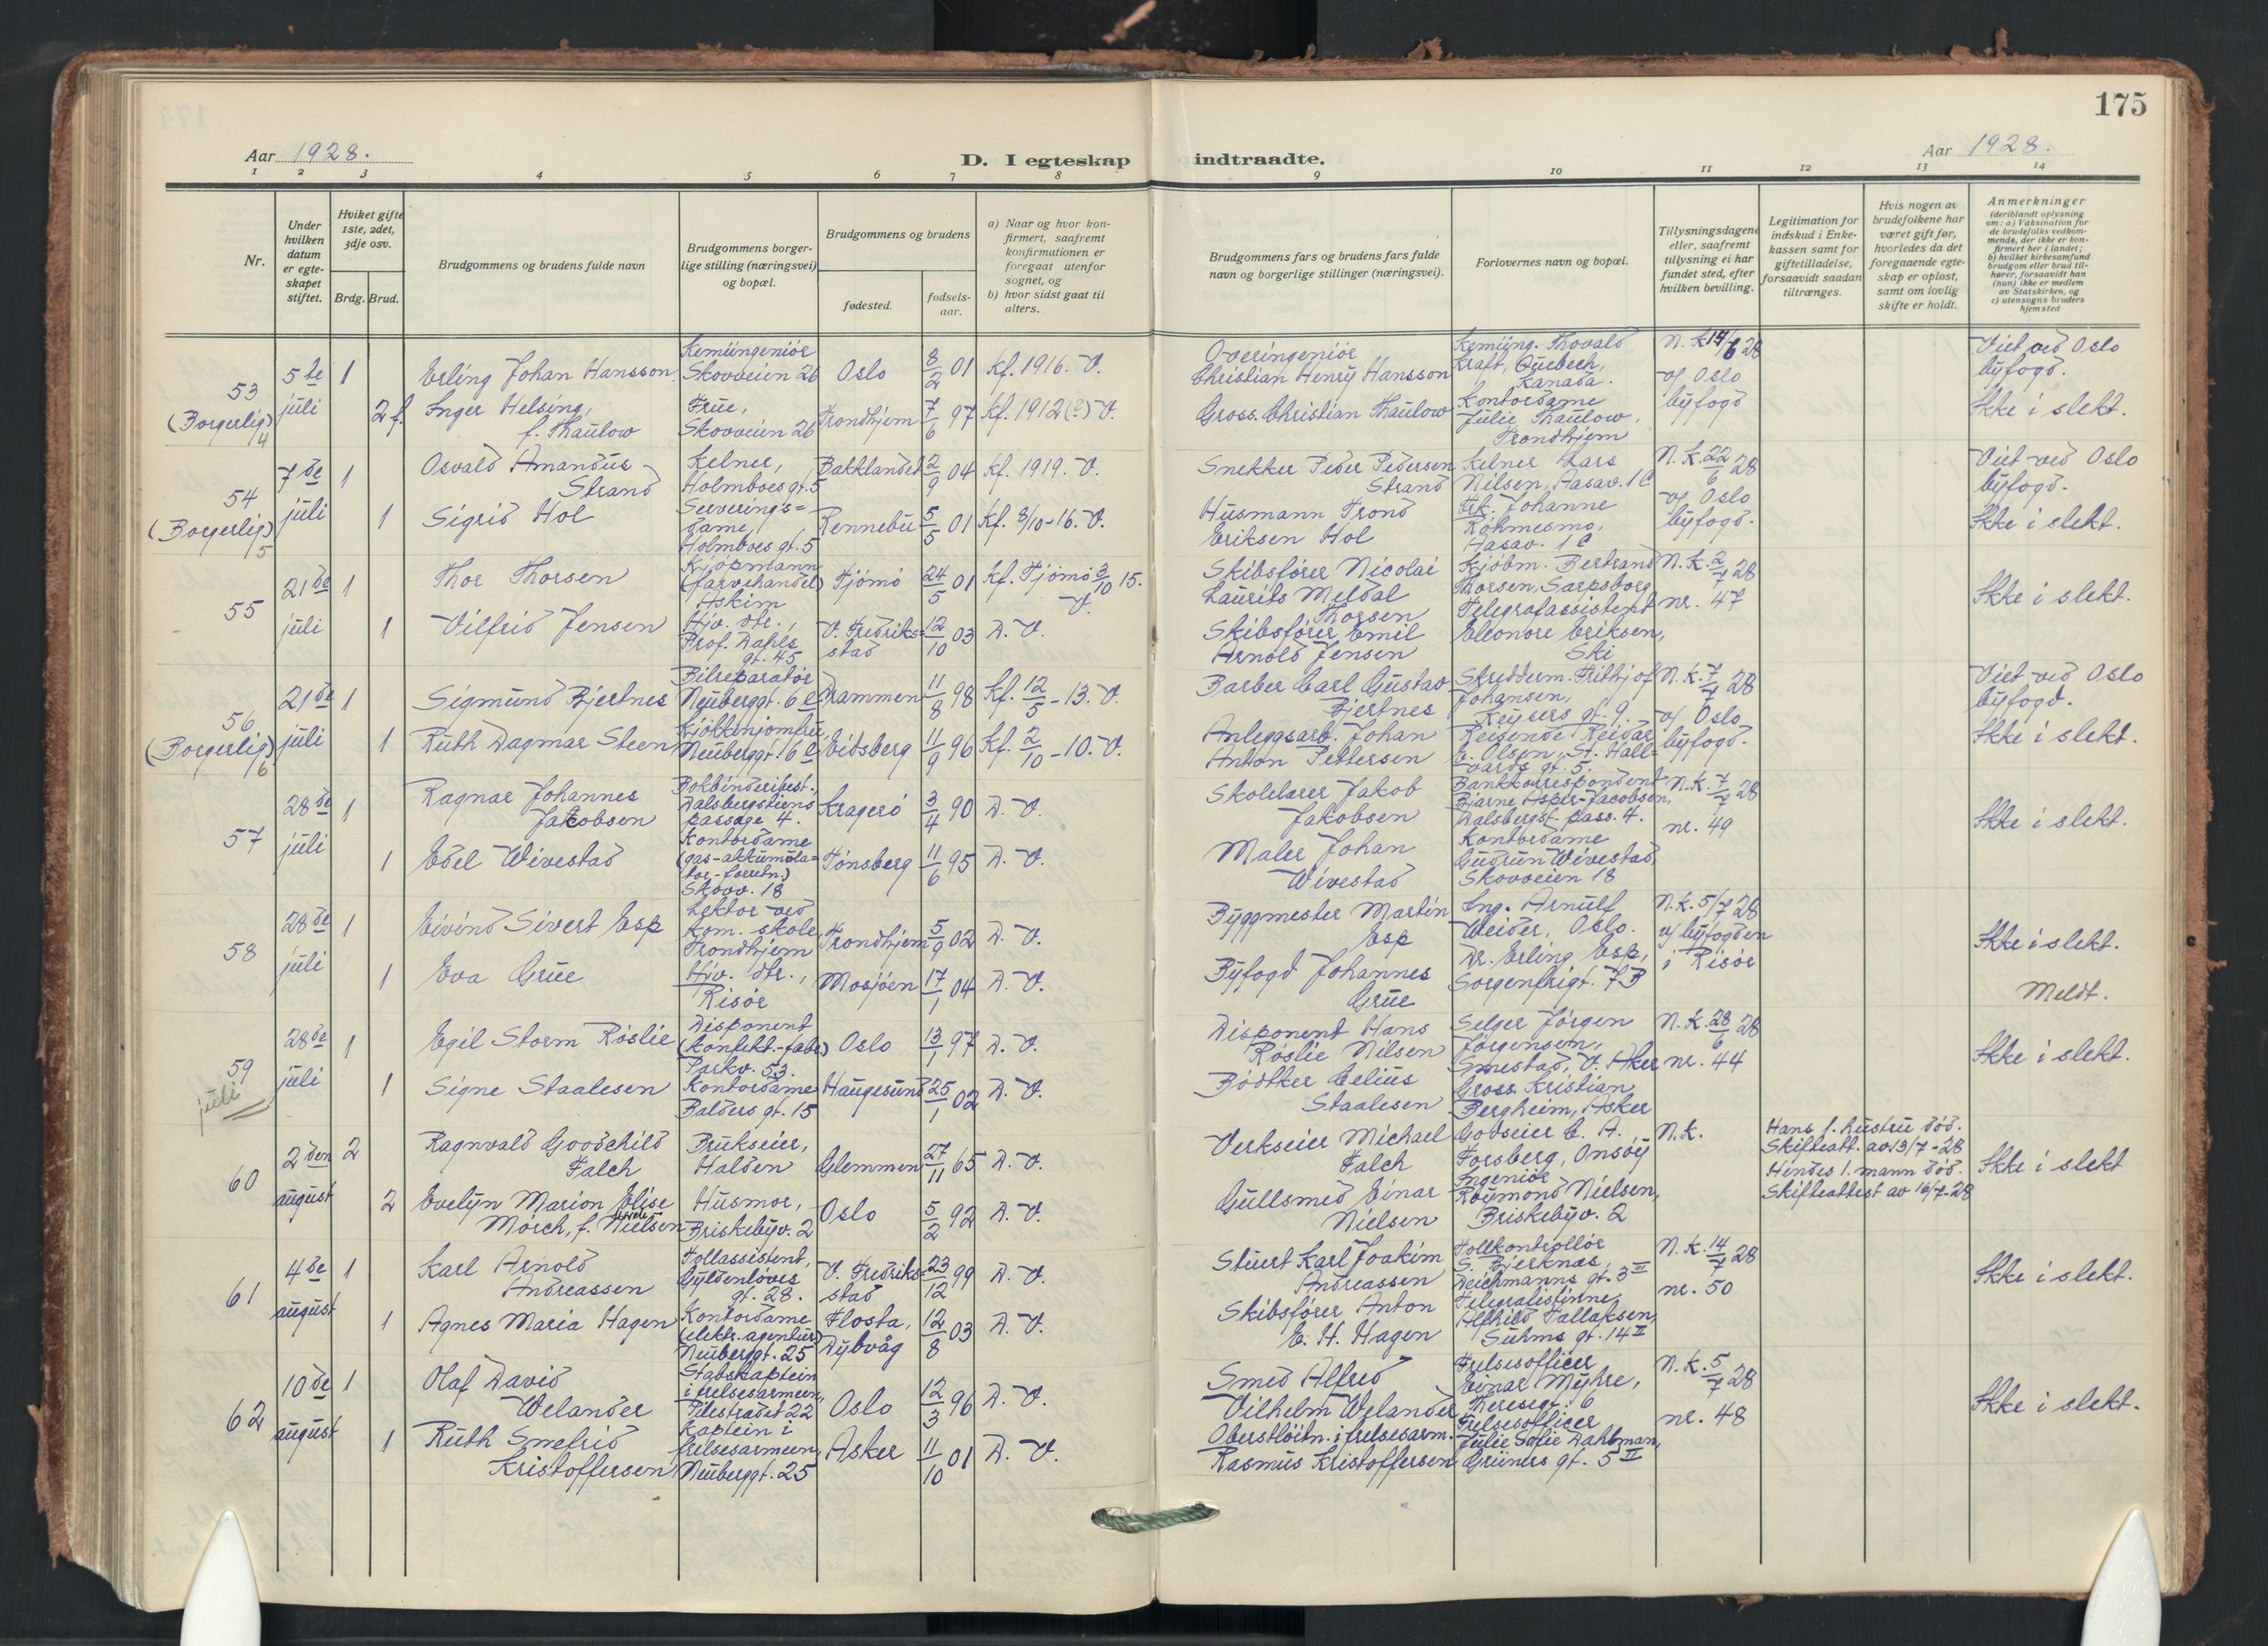 175
Aar 1928.
D. I egteskap indtraadte.
Aar 1928.
1 2 3 4 5 6 7 8 9 10 11 12 13 14
Nr.
Under hvilken datum er egteskapet stiftet.
Hvilket gifte 1ste, 2det, 3dje osv.
Brdg. Brud.
Brudgommens og brudens fulde navn
Brudgommens borgerlige stilling (næringsvei) og bopæl.
Brudgommens og brudens
fødested.
fødselsaar.
a) Naar og hvor konfirmert, saafremt konfirmationen er foregaat utenfor sognet, og
b) hvor sidst gaat til alters.
Brudgommens fars og brudens fars fulde navn og borgerlige stillinger (næringsvei).
Forlovernes navn og bopæl.
Tillysningsdagene eller, saafremt tillysning ei har fundet sted, efter hvilken bevilling.
Legitimation for indskud i Enkekassen samt for giftetilladelse, forsaavidt saadan tiltrænges.
Hvis nogen av brudefolkene har været gift før, hvorledes da det foregaaende egteskap er opløst, samt om lovlig skifte er holdt.
Anmerkninger
(deriblandt oplysning om: a) Vaksination for de brudefolks vedkommende, der ikke er konfirmert her i landet; b) hvilket kirkesamfund brudgom eller brud tilhører, forsaavidt han (hun) ikke er medlem av Statskirken, og c) utensogns bruders hjemsted
53
(Borgerlig)
4
5te juli
1
Erling Johan Hansson
Kemiingeniør
Skovveien 26
Oslo
8/2 01
Kf. 1916. V.
Overingeniør
Christian Henry Hansson
Kemiing. Thovald
Kraft, Quebech,
Kanada.
N. k. 14/6 28
v/ Oslo
byfogd
Viet ved Oslo
byfogd.
Ikke i slekt.
2 f.
Inger Helsing,
f. Thaulow
Frue,
Skovveien 26
Trondhjem
7/6 97
Kf. 1912 (?) V.
Gross. Christian Thaulow
Kontordame
Julie Thaulow,
Trondhjem
54
(Borgerlig)
5
7de juli
1
Osvald Amandus
Strand
Kelner,
Holmboes gt. 5
Bakklandet
2/9 04
Kf. 1919. V.
Snekker Peder Pedersen
Strand
Kelner Lars
Nilsen, Hasav. 1 C
N. k. 22/6 28
v/ Oslo
byfogd.
Viet ved Oslo
byfogd.
Ikke i slekt.
1
Sigrid Hol
Serverings=
dame,
Holmboes gt. 5
Rennebu
5/5 01
Kf. 8/10-16. V.
Husmann Trond
Eriksen Hol
Frk. Johanne
Røhmesmo,
Hasav. 1 C
55
21de juli
1
Thor Thorsen
Kjøpmann
(farvehandel)
Askim
Tjømø
24/5 01
Kf. Tjømø 3/10 15.
V.
Skibsfører Nicolai
Laurits Meldal
Thorsen
Kjøbm. Bertrand
Thorsen, Sarpsborg
N. k. 2/7 28
nr. 47
Ikke i slekt.
1
Vilfrid Jensen
Hjv. dtr.,
Prof. Dahls
gt. 45
V. Fredriks=
stad
12/10 03
D. V.
Skibsfører Emil
Arnold Jensen
Telegrafassistent
Eleonore Eriksen,
Ski
56
(Borgerlig)
6
21de juli
1
Sigmund Bjertnes
Bilreparatør
Neuberggt. 6 c
Drammen
11/8 98
Kf. 12/5-13. V.
Barber Carl Gustav
Bjertnes
Skredderm. Frithjof
Johansen,
Keysers gt. 9.
N. k. 7/7 28
v/ Oslo
byfogd.
Viet ved Oslo
byfogd.
Ikke i slekt.
1
Ruth Dagmar Steen
Kjøkkenjomfru,
Neuberggt. 6 c
Eidsberg
11/9 96
Kf. 2/10-10. V.
Anleggsarb. Johan
Anton Pettersen
Reisende Reidar
E. Olsen, St. Hall=
vards gt. 5.
57
28de juli
1
Ragnar Johannes
Jakobsen
Bokbinderibest.,
Dalsbergstiens
passage 4.
Kragerø
3/4 90
D. V.
Skolelærer Jakob
Jakobsen
Bankkorrespondent
Bjarne Asper-Jacobsen,
Dalsbergst. pass. 4.
N. k. 7/7 28
nr. 49
Ikke i slekt.
1
Edel Wivestad
Kontordame
(gas-akkumula=
tor-forretn.)
Skovv. 18
Tønsberg
11/6 95
D. V.
Maler Johan
Wivestad
Kontordame
Gudrun Wivestad,
Skovveien 18
58
28de juli
1
Eivind Sivert Esp
Lektor ved
kom. skole,
Trondhjem
Trondhjem
5/9 02
D. V.
Byggmester Martin
Esp
Ing. Arnulf
Weider, Oslo.
N. k. 5/7 28
v/ byfogden
i Risør
Ikke i slekt.
Meldt.
1
Eva Grue
Hjv. dtr.,
Risør
Mosjøen
17/1 04
D. V.
Byfogd Johannes
Grue
Dr. Erling Esp,
Sorgenfrigt. 7 B
59
juli
28de juli
1
Egil Storm Røslie
Disponent
(konfekt.-fabr.)
Parkv. 53.
Oslo
13/1 97
D. V.
Disponent Hans
Røslie Nilsen
Selger Jørgen
Jørgensen,
Smestad, V. Aker
N. k. 28/6 28
nr. 44
Ikke i slekt.
1
Signe Staalesen
Kontordame
Balders gt. 15
Haugesund
25/1 02
D. V.
Bødtker Celius
Staalesen
Gross. Kristian
Bergheim, Asker
60
2den august
2
Ragnvald Goodchild
Falch
Brukseier,
Halden
Glemmen
27/11 65
D. V.
Verkseier Michael
Falch
Godseier C. A.
Forsberg, Onsøy
N. k.
Hans 1. hustru død.
Skifteatt. av 13/7-28
Hindes 1. mann død.
Skifteattest av 16/7-28
Ikke i slekt
2
Evelyn Marion Elise
Morch, f. Nielsen
Husmor,
Briskebyv. 2
Oslo
5/2 92
D. V.
Gullsmed Einar
Nielsen
Ingeniør
Raymond Nielsen,
Briskebyv. 2
61
4de august
1
Karl Arnold
Andreassen
Tollassistent,
Gyldenløves
gt. 28.
V. Fredriks=
stad
23/12 99
D. V.
Stuert Karl Joakim
Andreassen
Tollkontrollør
S. Bjerknæs,
Deichmanns gt. 3 III
N. k. 14/7 28
nr. 50
Ikke i slekt.
1
Agnes Maria Hagen
Kontordame
(elektr. agentur)
Neuberggt. 25
Flosta,
Dybvåg
12/8 03
D. V.
Skibsfører Anton
E. H. Hagen
Telegrafistinne
Alfhild Tallaksen,
Suhms gt. 14 II
62
10de august
1
Olaf David
Welander
Stabskaptein
i frelsesarmeen,
Pilestrædet 22
Oslo
12/3 96
D. V.
Smed Alfred
Vilhelm Welander
Frelsesofficer
Einar Myhre,
Theresgt. 6
N. k. 5/7 28
nr. 48
Ikke i slekt.
1
Ruth Snefrid
Kristoffersen
Kaptein i
frelsesarmeen,
Neuberggt. 25
Asker
11/10 01
D. V.
Oberstløitn. i frelsesarm.
Rasmus Kristoffersen
Frelsesofficer
Julie Sofie Dahlman,
Grüners gt. 5 II